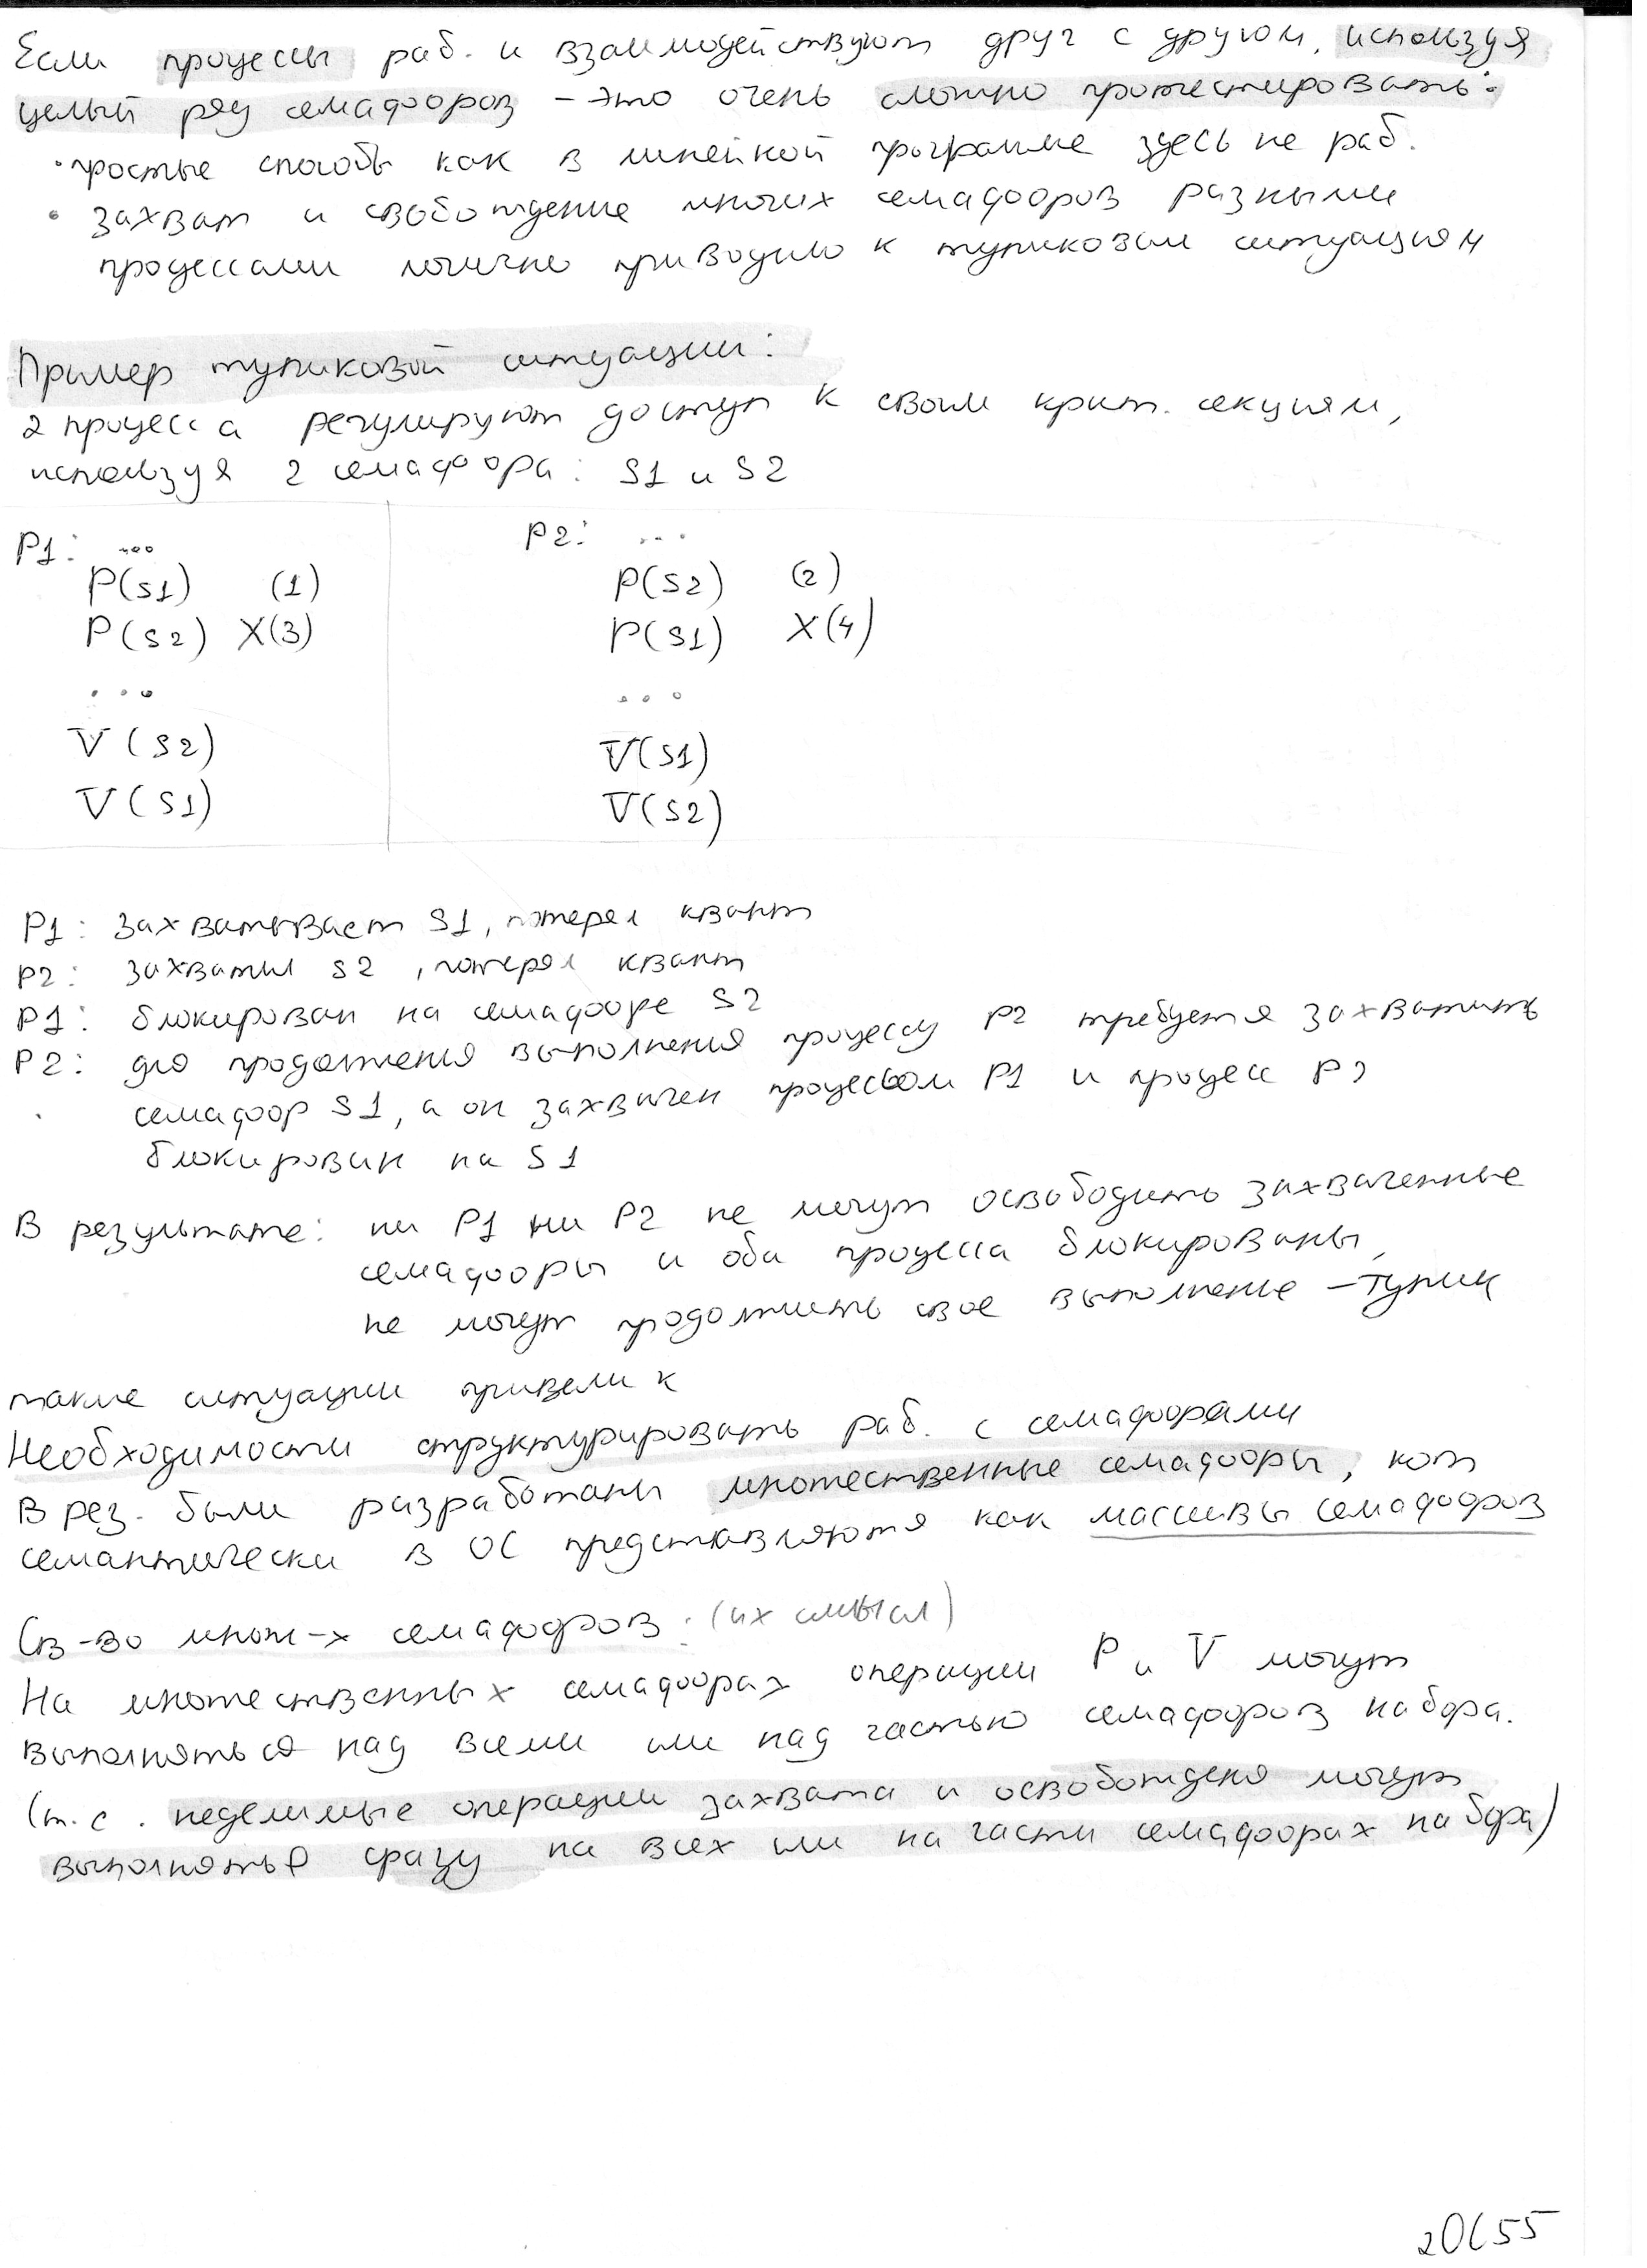 Если процессы раб. и взаимодействуют друг с другом, используя
целый ряд семафоров – это очень сложно протестировать:
· простые способы как в линейной программе здесь не раб.
· захват и свобождение многих семафоров разными
процессами логично приводило к тупиковым ситуациям
Пример тупиковой ситуации:
2 процесса регулируют доступ к своим крит. секциям,
используя 2 семафора: S1 и S2
P1: ... P2: ...
P(S1) (1) P(S2) (2)
P(S2) X(3) P(S1) X(4)
... ...
V(S2) V(S1)
V(S1) V(S2)
P1: захватывает S1, потерял квант
P2: захватил S2, потерял квант
P1: блокирован на семафоре S2
P2: для продолжения выполнения процессу P2 требуется захватить
семафор S1, а он захвачен процессом P1 и процесс P2
блокирован на S1
В результате: ни P1 ни P2 не могут освободить захваченные
семафоры и оба процесса блокированы,
не могут продолжить свое выполнение – тупик
такие ситуации привели к
Необходимости структурировать раб. с семафорами
В рез. были разработаны множественные семафоры, кот
семантически в ОС представляются как массивы семафоров
Св-во множ-х семафоров: (их смысл)
На множественных семафорах операции P и V могут
выполняться над всеми или над частью семафоров набора.
(т.е. неделимые операции захвата и освобождения могут
выполняться сразу на всех или на части семафорах набора)
2ОС55